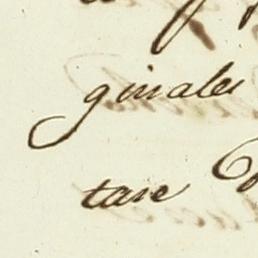 ginales
tare